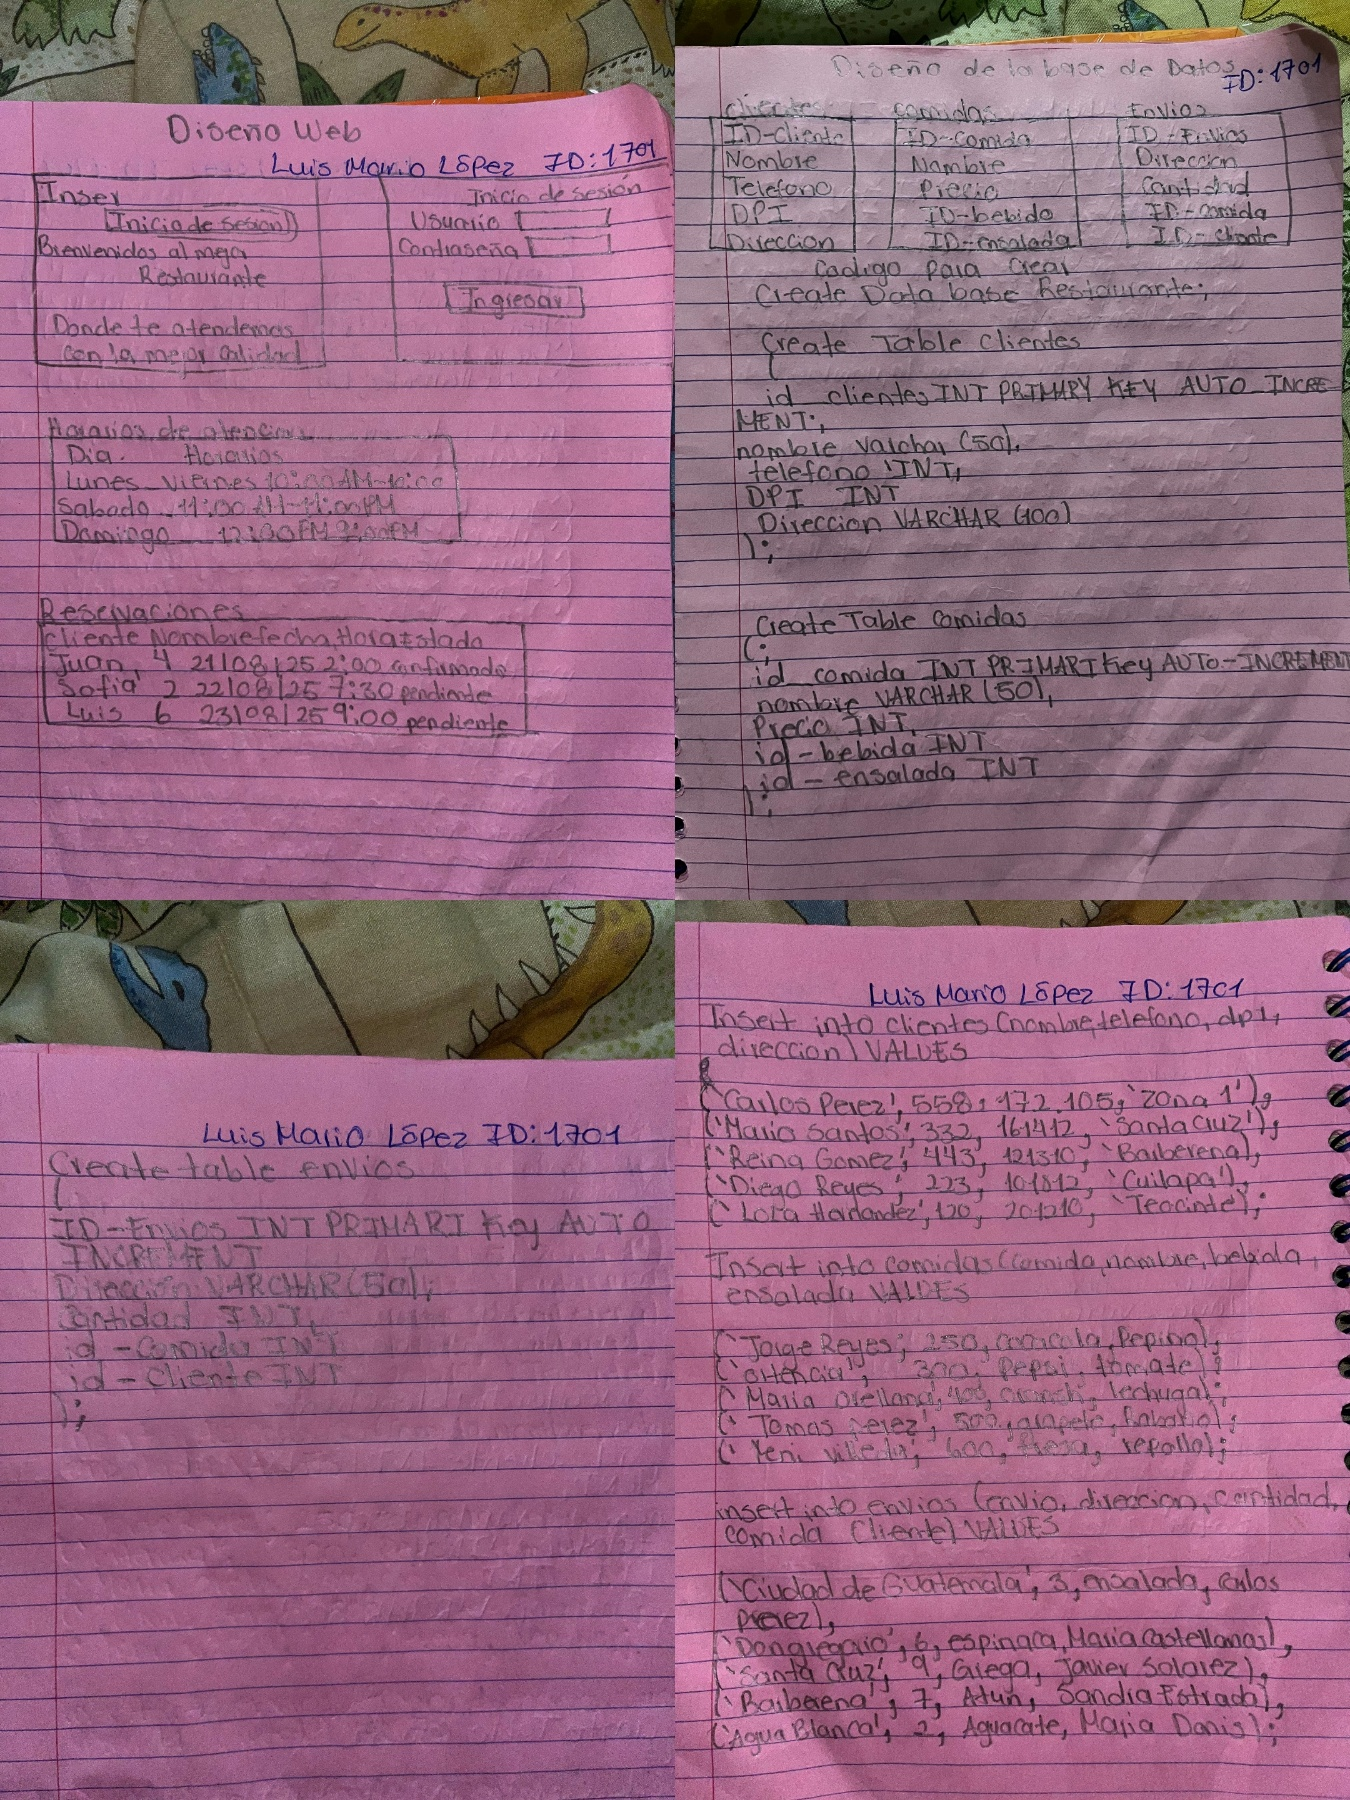 Diseño Web
Luis Mario López ID: 1701
Inser
Inicio de sesion
Bienvenidos al mega
Restaurante
Donde te atendemos
con la mejor calidad
Inicio de sesión
Usuario
Contraseña
Ingresar
Horarios de atencion
Dia. Horarios
Lunes - Viernes 10:00AM-10:00
Sabado - 11:00AM-11:00PM
Domingo - 12:00PM 9:00PM
Reservaciones
Cliente Nombre fecha, Hora Estado
Juan, 4 21/08/25 2:00 confirmado
Sofia 2 22/08/25 7:30 pendiente
Luis 6 23/08/25 9:00 pendiente
Diseño de la base de Datos
ID: 1701
clientes
ID-cliente
Nombre
Telefono
DPI
Direccion
comidas
ID-Comida
Nombre
Precio
ID-bebida
ID-ensalada
Envios
ID-Envios
Direccion
Cantidad
ID-comida
ID-cliente
Codigo para crear
Create Data base Restaurante;
Create Table Clientes
(
id clientes INT PRIMARY KEY AUTO INCRE
MENT;
nombre varchar (50),
telefono INT,
DPI INT
Direccion VARCHAR (100)
);
Create Table comidas
(;
id comida INT PRIMARI Key AUTO-INCREMENT
nombre VARCHAR (50),
Precio INT,
id-bebida INT
id-ensalada INT
);
Luis Mario López ID: 1701
Create table envios
(
ID-Envios INT PRIMARI Key AUTO
INCREMENT
Dirección VARCHAR (50),
Cantidad INT,
id-Comida INT
id-Cliente INT
);
Luis Mario López ID: 1701
Insert into clientes (nombre, telefono, dpi,
direccion) VALUES
('Carlos Perez', 558, 172.105, 'Zona 1'),
('Maria Santos', 332, 161412, 'Santa Cruz'),
('Reina Gomez', 443, 121310, 'Barberena),
('Diego Reyes', 223, 101812, 'Cuilapa'),
('Lota Hernandez', 120, 201210, 'Teocinte);
Insert into comidas (comida, nombre, bebida,
ensalada VALUES
('Jorge Reyes, 250, cocacola, Pepino),
('ortencia', 300, pepsi, tomate);
('Maria Orellana, 400, lechuga);
('Tomas perez', 500, Rabano);
('Yeni 600, fresa, repollo);
insert into envios (envio, direccion, cantidad,
comida Cliente) VALUES
('Ciudad de Guatemala', 3, ensalada, carlos
Perez),
('Dongregorio', 6, espinaca, Maria Castellanos),
('Santa Cruz', 9, Griega, Javier Solarez),
('Barberena', 7, Atun, Sandra Estrada),
('Agua Blanca', 2, Aguacate, Maria Donis);